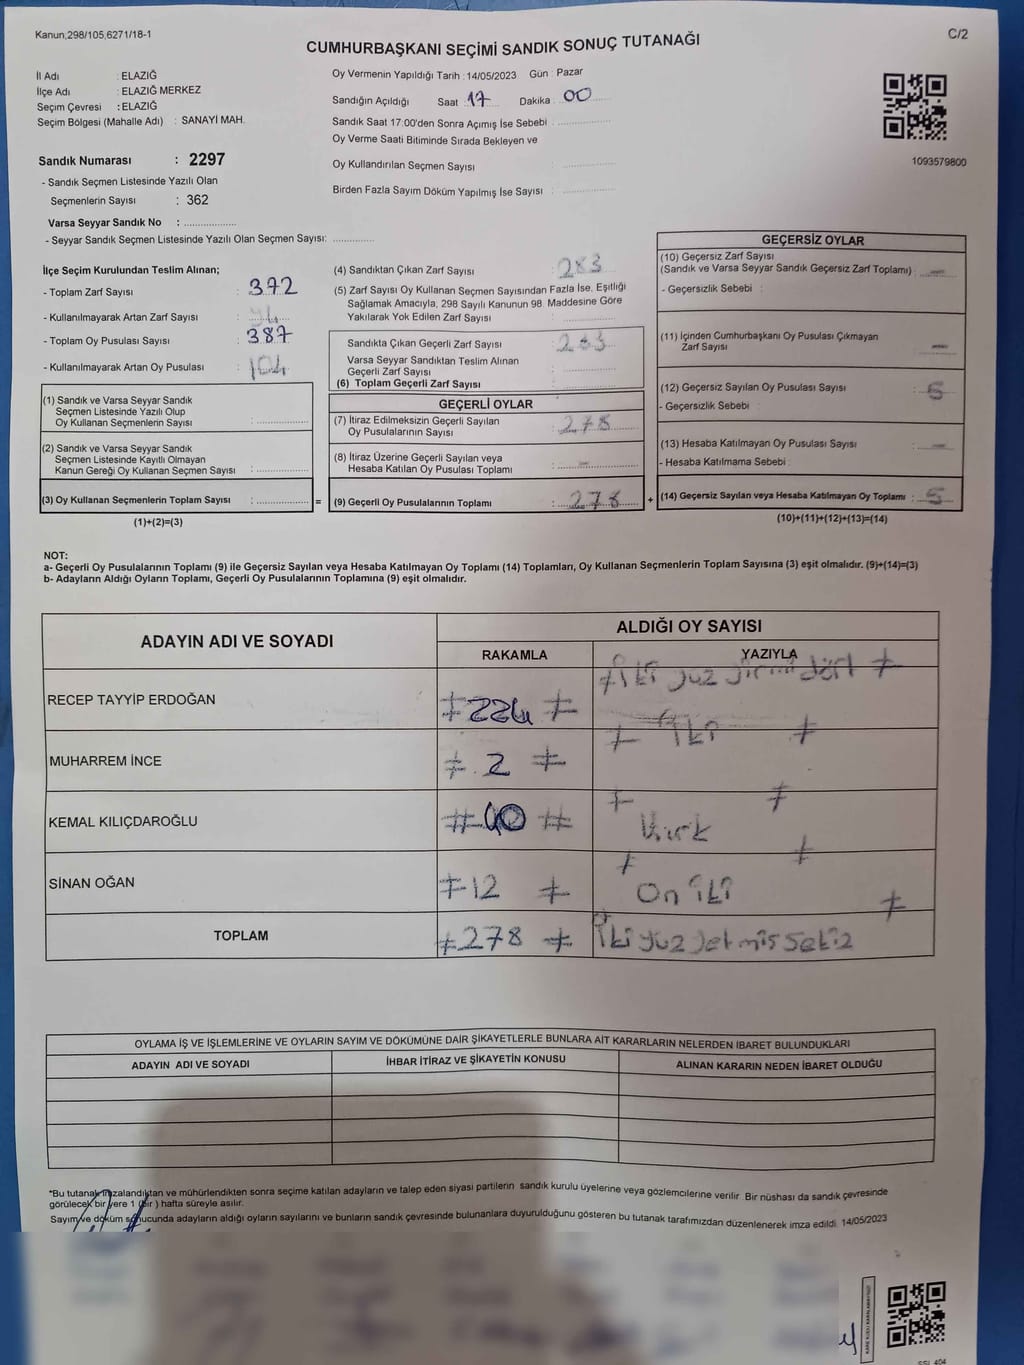 Kanun,298/105,6271/18-1
C/2
CUMHURBAŞKANI SEÇİMİ SANDIK SONUÇ TUTANAĞI
İl Adı : ELAZIĞ
İlçe Adı : ELAZIĞ MERKEZ
Seçim Çevresi : ELAZIĞ
Seçim Bölgesi (Mahalle Adı) : SANAYİ MAH.
Sandık Numarası : 2297
- Sandık Seçmen Listesinde Yazılı Olan
Seçmenlerin Sayısı : 362
Varsa Seyyar Sandık No :
- Seyyar Sandık Seçmen Listesinde Yazılı Olan Seçmen Sayısı:
Oy Vermenin Yapıldığı Tarih : 14/05/2023 Gün : Pazar
Sandığın Açıldığı Saat 17 Dakika : 00
Sandık Saat 17:00'den Sonra Açımış İse Sebebi :
Oy Verme Saati Bitiminde Sırada Bekleyen ve
Oy Kullandırılan Seçmen Sayısı :
Birden Fazla Sayım Döküm Yapılmış İse Sayısı :
1093579800
İlçe Seçim Kurulundan Teslim Alınan;
- Toplam Zarf Sayısı : 372
- Kullanılmayarak Artan Zarf Sayısı :
- Toplam Oy Pusulası Sayısı : 387
- Kullanılmayarak Artan Oy Pusulası : 104
(1) Sandık ve Varsa Seyyar Sandık
Seçmen Listesinde Yazılı Olup
Oy Kullanan Seçmenlerin Sayısı :
(2) Sandık ve Varsa Seyyar Sandık
Seçmen Listesinde Kayıtlı Olmayan
Kanun Gereği Oy Kullanan Seçmen Sayısı :
(3) Oy Kullanan Seçmenlerin Toplam Sayısı : =
(1)+(2)=(3)
(4) Sandıktan Çıkan Zarf Sayısı : 283
(5) Zarf Sayısı Oy Kullanan Seçmen Sayısından Fazla İse, Eşitliği
Sağlamak Amacıyla, 298 Sayılı Kanunun 98. Maddesine Göre
Yakılarak Yok Edilen Zarf Sayısı :
Sandıkta Çıkan Geçerli Zarf Sayısı : 283
Varsa Seyyar Sandıktan Teslim Alınan
Geçerli Zarf Sayısı :
(6) Toplam Geçerli Zarf Sayısı :
GEÇERLİ OYLAR
(7) İtiraz Edilmeksizin Geçerli Sayılan
Oy Pusulalarının Sayısı : 278
(8) İtiraz Üzerine Geçerli Sayılan veya
Hesaba Katılan Oy Pusulası Toplamı : -
(9) Geçerli Oy Pusulalarının Toplamı : 278 +
GEÇERSİZ OYLAR
(10) Geçersiz Zarf Sayısı
(Sandık ve Varsa Seyyar Sandık Geçersiz Zarf Toplamı) : -
- Geçersizlik Sebebi :
(11) İçinden Cumhurbaşkanı Oy Pusulası Çıkmayan
Zarf Sayısı : -
(12) Geçersiz Sayılan Oy Pusulası Sayısı : 5
- Geçersizlik Sebebi :
(13) Hesaba Katılmayan Oy Pusulası Sayısı : -
- Hesaba Katılmama Sebebi :
(14) Geçersiz Sayılan veya Hesaba Katılmayan Oy Toplamı : 5
(10)+(11)+(12)+(13)=(14)
NOT:
a- Geçerli Oy Pusulalarının Toplamı (9) ile Geçersiz Sayılan veya Hesaba Katılmayan Oy Toplamı (14) Toplamları, Oy Kullanan Seçmenlerin Toplam Sayısına (3) eşit olmalıdır. (9)+(14)=(3)
b- Adayların Aldığı Oyların Toplamı, Geçerli Oy Pusulalarının Toplamına (9) eşit olmalıdır.
ADAYIN ADI VE SOYADI
ALDIĞI OY SAYISI
RAKAMLA YAZIYLA
RECEP TAYYİP ERDOĞAN ≠ 224 ≠ ≠ İki yüz yirmi dört ≠
MUHARREM İNCE ≠ 2 ≠ ≠ İki ≠
KEMAL KILIÇDAROĞLU # 40 # ≠ kırk ≠
SİNAN OĞAN ≠ 12 ≠ ≠ On iki ≠
TOPLAM ≠ 278 ≠ İki yüz yetmiş sekiz ≠
OYLAMA İŞ VE İŞLEMLERİNE VE OYLARIN SAYIM VE DÖKÜMÜNE DAİR ŞİKAYETLERLE BUNLARA AİT KARARLARIN NELERDEN İBARET BULUNDUKLARI
ADAYIN ADI VE SOYADI İHBAR İTİRAZ VE ŞİKAYETİN KONUSU ALINAN KARARIN NEDEN İBARET OLDUĞU
*Bu tutanak imzalandıktan ve mühürlendikten sonra seçime katılan adayların ve talep eden siyasi partilerin sandık kurulu üyelerine veya gözlemcilerine verilir. Bir nüshası da sandık çevresinde
görülecek bir yere 1 (bir) hafta süreyle asılır.
Sayım ve döküm sonucunda adayların aldığı oyların sayılarını ve bunların sandık çevresinde bulunanlara duyurulduğunu gösteren bu tutanak tarafımızdan düzenlenerek imza edildi. 14/05/2023